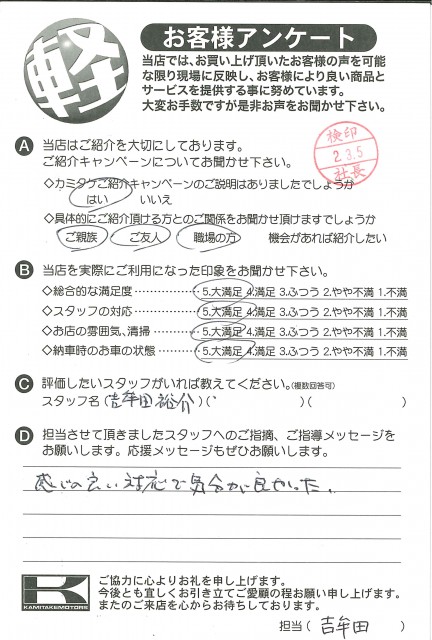 軽
お客様アンケート
当店では、お買い上げ頂いたお客様の声を可能
な限り現場に反映し、お客様により良い商品と
サービスを提供する事に努めています。
大変お手数ですが是非お声をお聞かせ下さい。
A 当店はご紹介を大切にしております。
ご紹介キャンペーンについてお聞かせ下さい。
検印
2.3.5
社長
◇カミタケご紹介キャンペーンのご説明はありましたでしょうか
はい いいえ
◇具体的にご紹介頂ける方とのご関係をお聞かせ頂けますでしょうか
ご親族 ご友人 職場の方 機会があれば紹介したい
B 当店を実際にご利用になった印象をお聞かせ下さい。
◇総合的な満足度………… 5.大満足 4.満足 3.ふつう 2.やや不満 1.不満
◇スタッフの対応………… 5.大満足 4.満足 3.ふつう 2.やや不満 1.不満
◇お店の雰囲気、清掃…… 5.大満足 4.満足 3.ふつう 2.やや不満 1.不満
◇納車時のお車の状態…… 5.大満足 4.満足 3.ふつう 2.やや不満 1.不満
C 評価したいスタッフがいれば教えてください。(複数回答可)
スタッフ名(吉牟田裕介)( )( )
D 担当させて頂きましたスタッフへのご指摘、ご指導メッセージを
お願いします。応援メッセージもぜひお願いします。
感じの良い対応で気分が良かった。
K
KAMITAKEMOTORS
ご協力に心よりお礼を申し上げます。
今後とも宜しくお引き立てご愛顧の程お願い申し上げます。
またのご来店を心からお待ちしております。
担当( 吉牟田 )